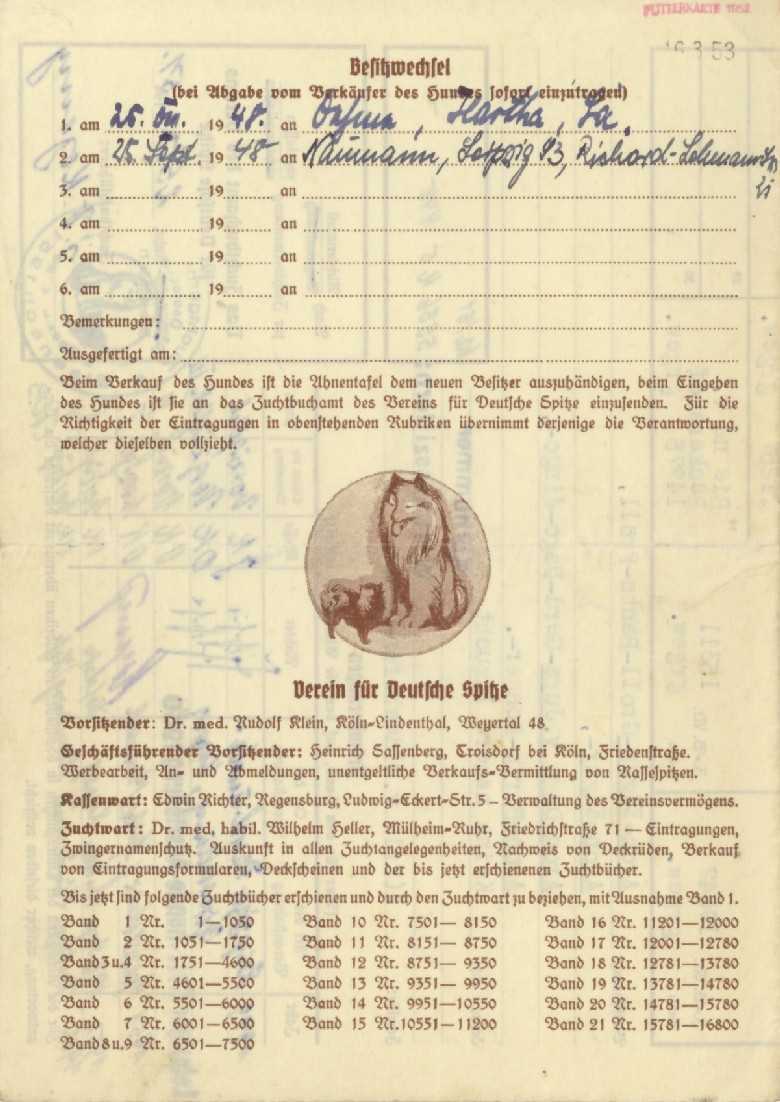 FUTTERKARTE
16.3.53
Besitzwechsel
(bei Abgabe vom Verkäufer des Hundes sofort einzutragen)
1. am 26. 1948. an Hartha, Sa.
2. am 25. Sept. 1948 an Naumann, Leipzig 13, Richard-Lehmannstr.
3. am 19 an
4. am 19 an
5. am 19 an
6. am 19 an
Bemerkungen:
Ausgefertigt am:
Beim Verkauf des Hundes ist die Ahnentafel dem neuen Besitzer auszuhändigen, beim Eingehen
des Hundes ist sie an das Zuchtbuchamt des Vereins für Deutsche Spitze einzusenden. Für die
Richtigkeit der Eintragungen in obenstehenden Rubriken übernimmt derjenige die Verantwortung,
welcher dieselben vollzieht.
Verein für Deutsche Spitze
Vorsitzender: Dr. med. Rudolf Klein, Köln-Lindenthal, Weyertal 48
Geschäftsführender Vorsitzender: Heinrich Sassenberg, Troisdorf bei Köln, Friedenstraße.
Werbearbeit, An- und Abmeldungen, unentgeltliche Verkaufs-Vermittlung von Rassespitzen.
Kassenwart: Edwin Richter, Regensburg, Ludwig-Eckert-Str. 5 – Verwaltung des Vereinsvermögens.
Zuchtwart: Dr. med. habil. Wilhelm Heller, Mülheim-Ruhr, Friedrichstraße 71 — Eintragungen,
Zwingernamenschutz. Auskunft in allen Zuchtangelegenheiten, Nachweis von Deckrüden, Verkauf
von Eintragungsformularen, Deckscheinen und der bis jetzt erschienenen Zuchtbücher.
Bis jetzt sind folgende Zuchtbücher erschienen und durch den Zuchtwart zu beziehen, mit Ausnahme Band 1.
Band 1 Nr. 1—1050 Band 10 Nr. 7501— 8150 Band 16 Nr. 11201—12000
Band 2 Nr. 1051—1750 Band 11 Nr. 8151— 8750 Band 17 Nr. 12001—12780
Band 3 u. 4 Nr. 1751—4600 Band 12 Nr. 8751— 9350 Band 18 Nr. 12781—13780
Band 5 Nr. 4601—5500 Band 13 Nr. 9351— 9950 Band 19 Nr. 13781—14780
Band 6 Nr. 5501—6000 Band 14 Nr. 9951—10550 Band 20 Nr. 14781—15780
Band 7 Nr. 6001—6500 Band 15 Nr. 10551—11200 Band 21 Nr. 15781—16800
Band 8 u. 9 Nr. 6501—7500